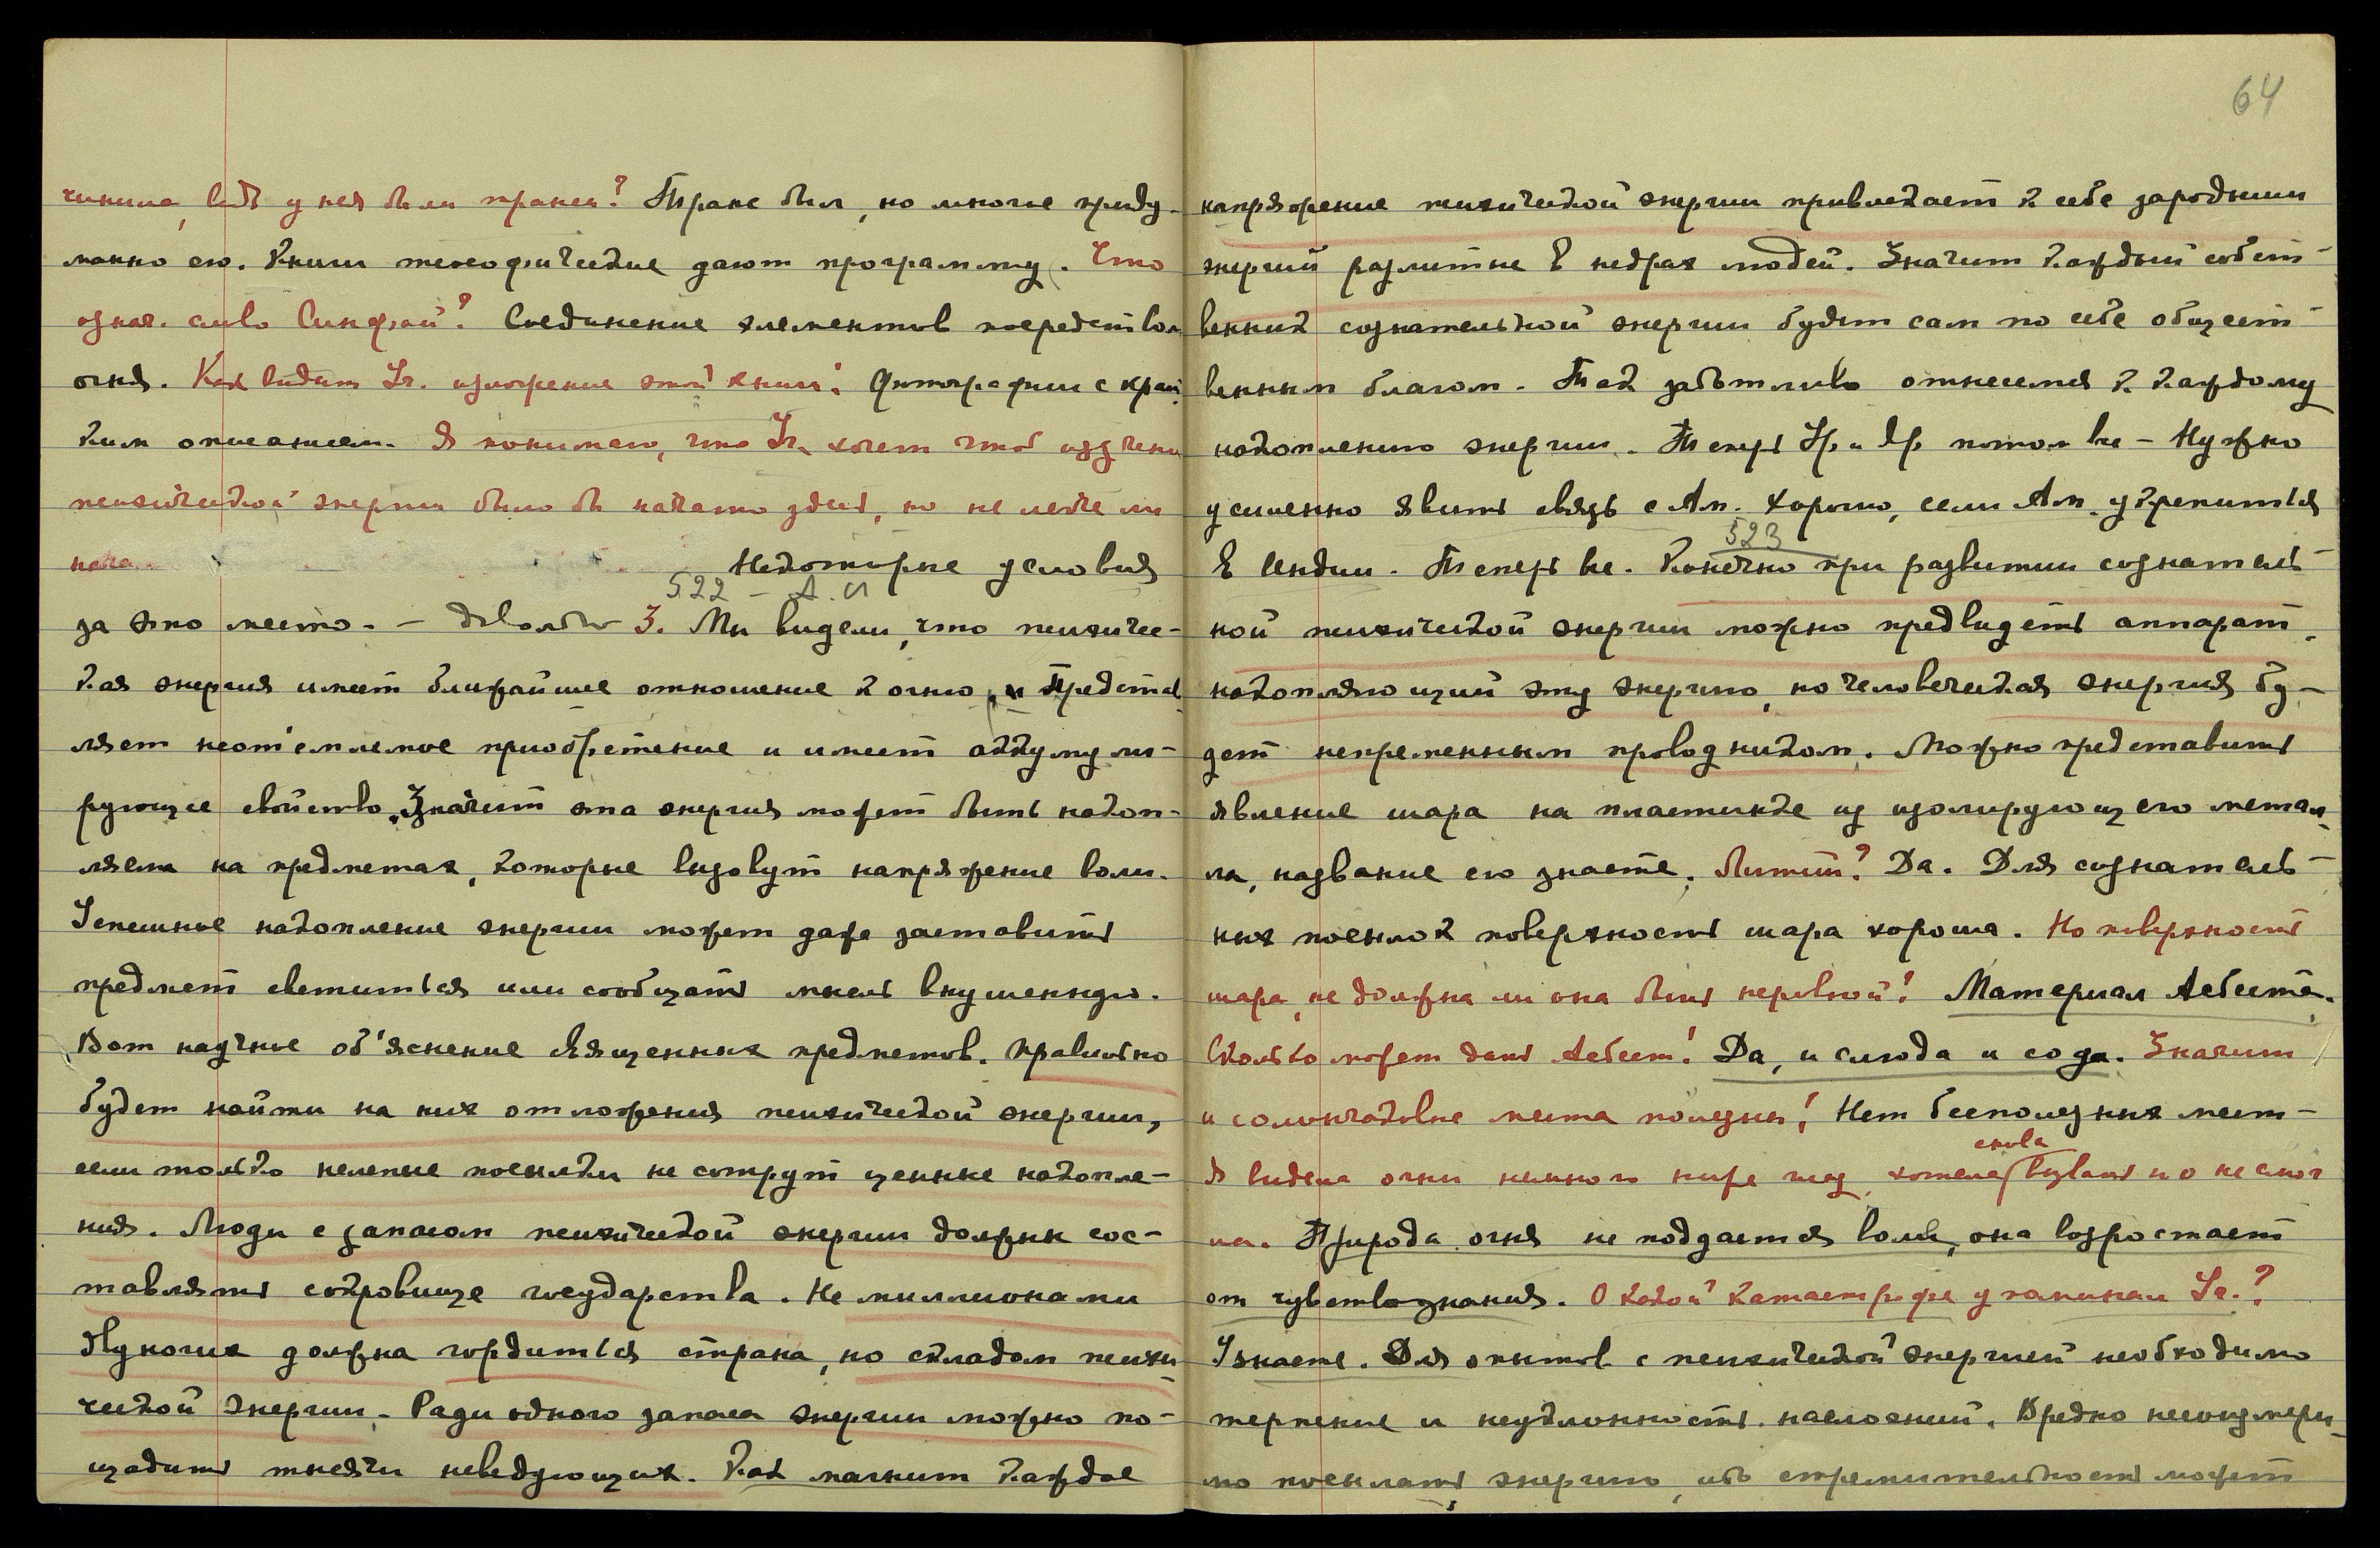 64
чинила, ведь у нея были трансы? Транс был, но многое приду-
манно ею. Книги теософические дают программу. Что
означ. слово Синфай? Соединение элементов посредством
огня. Как видит Уч. изложение этой книги? Фотографии с крат-
ким описанием. Я понимаю, что Уч. хочет чтоб изучени
психической энергии было бы начато здесь, но не легче ли
нача
Некоторые условия
за это место. - довольно
522 - А.Й
3. Мы видели, что психичес-
кая энергия имеет ближайшее отношение к огню, и Представ
ляет неот'емлемое приобретение и имеет аккумули-
рующее свойство. Значит эта энергия может быть накоп-
ляема на предметах, которые вызовут напряжение воли.
Успешное накопление энергии может даже заставить
предмет светиться или сообщать мысль внушенную.
Вот научное об'яснение священных предметов. Правильно
будет найти на них отложения психической энергии,
если только нелепые посылки не сотрут ценные накопле-
ния. Люди с запасом психической энергии должны сос-
тавлять сокровище государства. Не миллионами
двуногих должна гордиться страна, но складом психи-
ческой энергии. Ради одного запаса энергии можно по-
щадить тысячи неведующих. Как магнит каждое
напряжение психической энергии привлекает к себе зародыши
энергий разлитые в недрах людей. Значит каждый собст-
венник сознательной энергии будет сам по себе общест-
венным благом. Так заботливо отнесемся к каждому
накоплению энергии. Теперь Ур. и Яр. потом все - Нужно
усиленно явить связь с Ам. Хорошо, если Ам. укрепиться
в Индии. Теперь все.
523
Конечно при развитии сознатель-
ной психической энергии можно предвидеть аппарат,
накопляющий эту энергию, но человеческая энергия бу-
дет непременным проводником. Можно представить
явление шара на пластинке из изолирующего метал-
ла, название его знаете. Литий? Да. Для сознатель-
ных посылок поверхность шара хороша. Но поверхность
шара, не должна ли она быть неровной? Материал Асбеста.
Сколько может дать Асбест! Да, и слюда и сода. Значит
и солончаковые места полезны! Нет бесполезных мест -
снова
Я видела огни немного ниже глаз, хотела вызвать но не смог
ла. Природа огня не поддается воле, она возростает
от чувствознания. О какой катастрофе упоминал Уч.?
Узнаете. Для опытов с психической энергией необходимо
терпение и неуклонность наслоений. Вредно несоизмери-
мо посылать энергию, ибо стремительность может